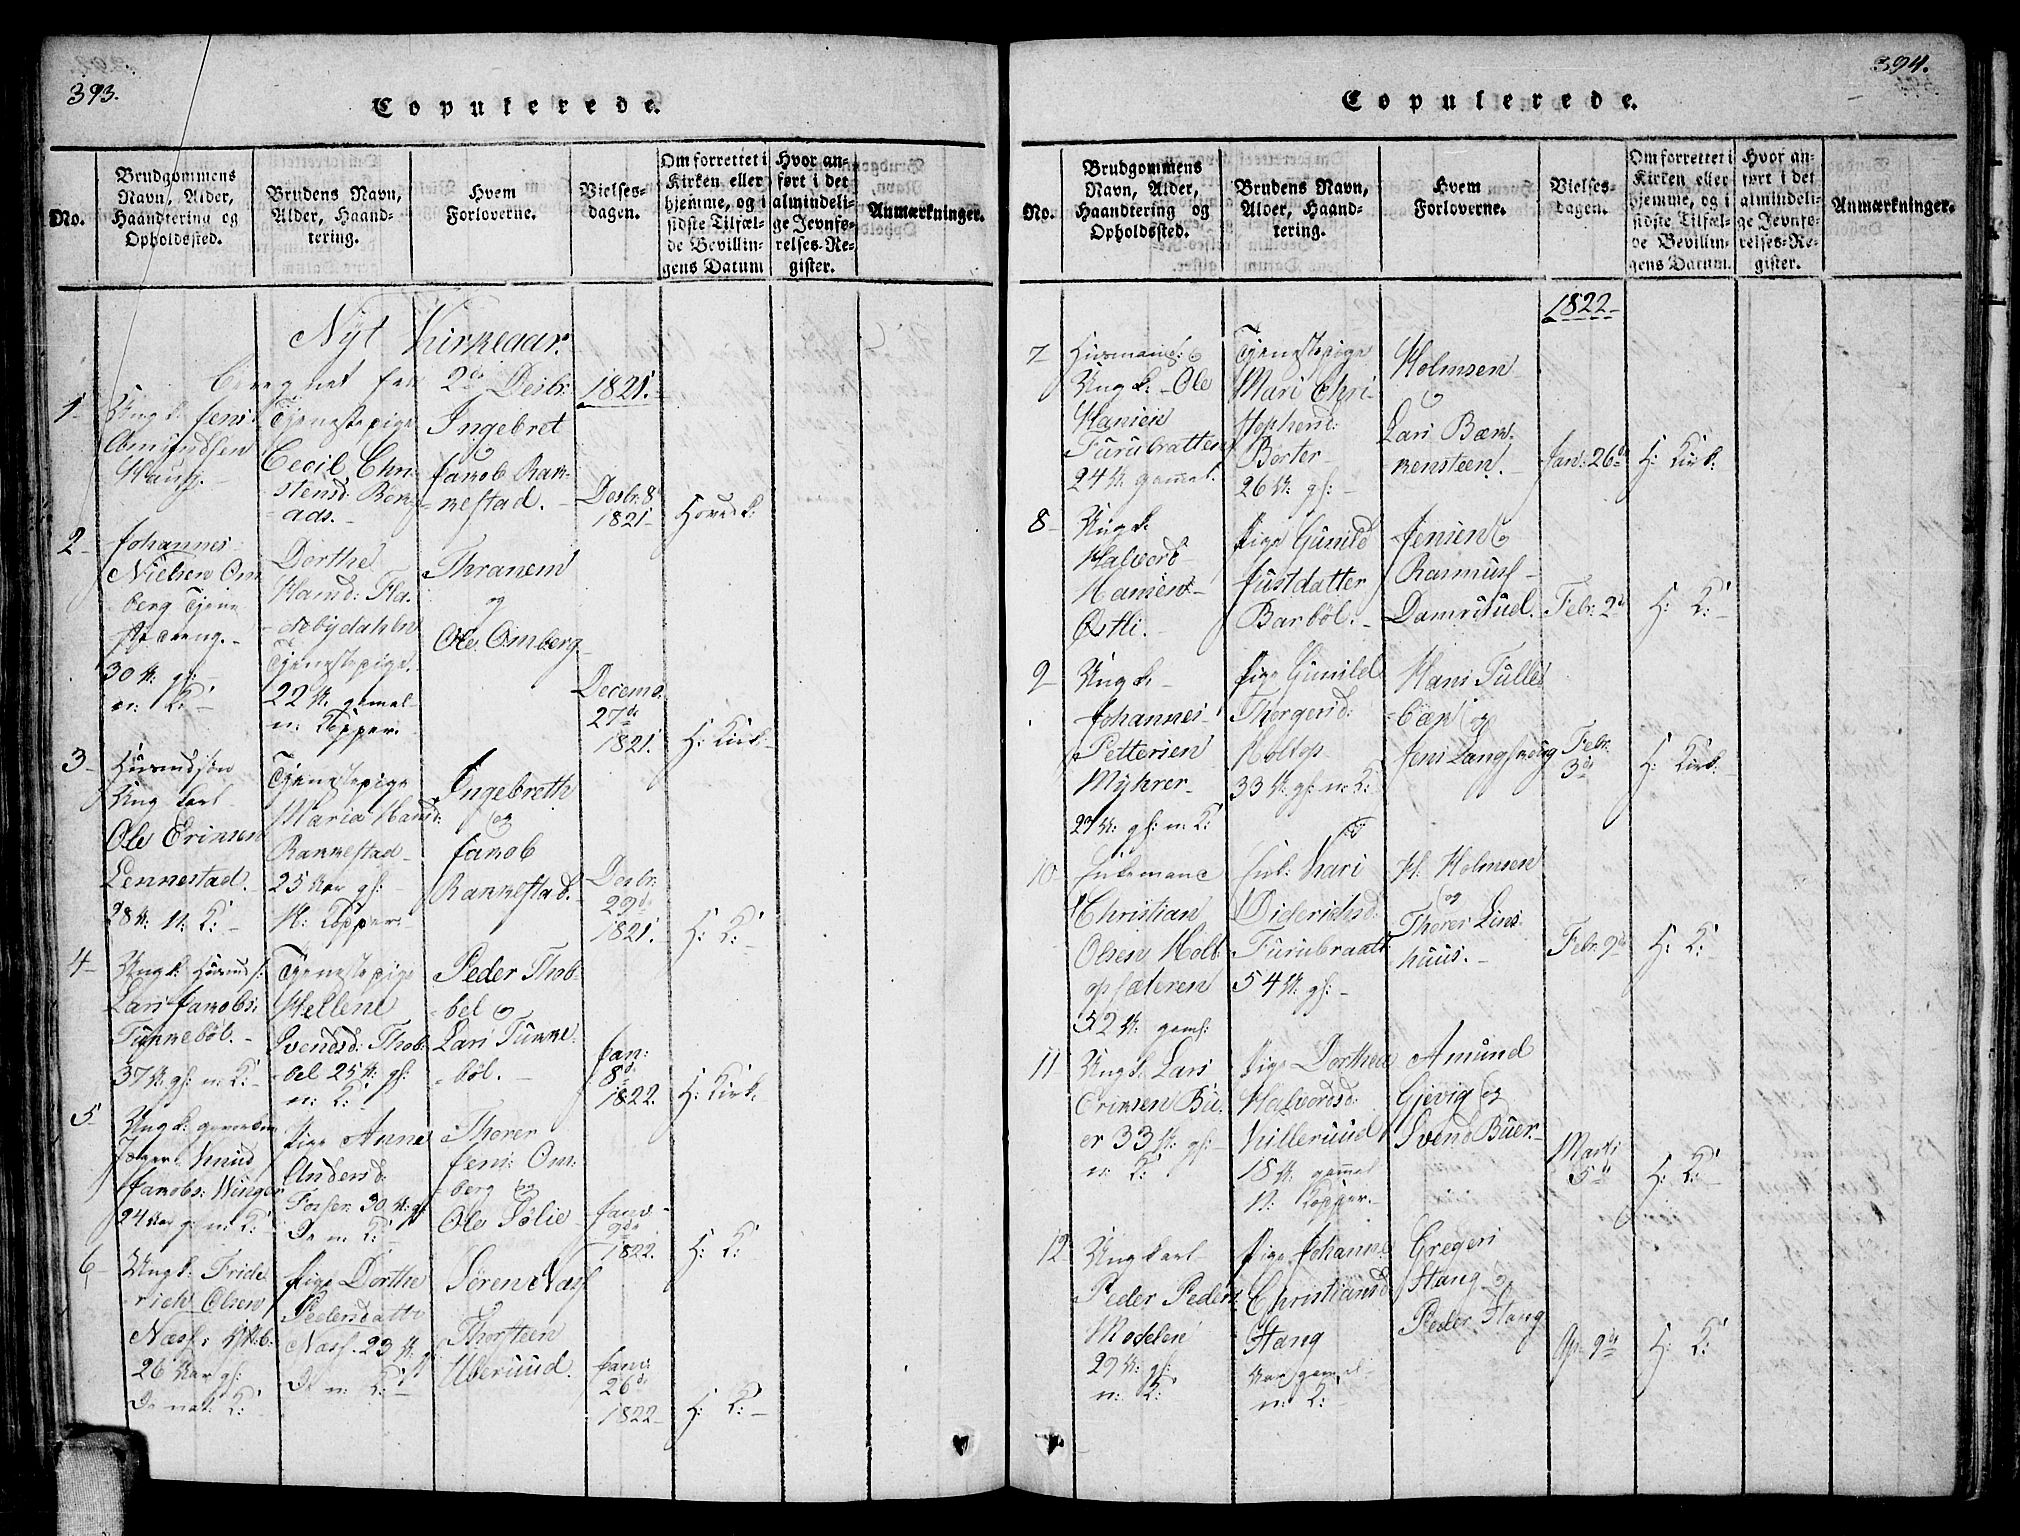 393.
Copulerede.
No.
Brudgommens
Navn, Alder,
Haandtering og
Opholdssted.
Brudens Navn,
Alder, Haand-
tering.
Hvem
Forloverne.
Vielses-
dagen.
Om forrettet i
Kirken eller
hjemme, og i
sidste Tilfæl-
de Bevillin-
gens Datum
Hvor an-
ført i det
almindeli-
ge Jevnfø-
relses-Re-
gister.
Anmærkninger.
Nyt Kirkeaar.
2de Desbr: 1821.
1
Ungk: Jens
Amundsen
Haug.
Tjenestepige
Cecil Chri-
stensd:
Ingebret
Jakob Ran-
kestad.
Desbr: 8
1821
Hovedk:
2
Johannes
Nielsen Om
berg
30 A: gl:
n: K:
Dorthe
Hansd: Fla-
debydahlen
Tjenestepige
22 A: gamel
n: Kopper.
Thranem
og
Ole Omberg
Decemb:
27de
1821.
H: Kirk
3
Husmdsøn
Ung karl
Ole Eriksen
Lennestad.
28 A: n: K:
Tjenestepige
Maria Hansd:
Rankestad
25 Aar gl:
N: Kopper:
Ingebreth
og
Jakob
Rankestad.
Desbr:
29de
1821.
H: K:
4
Ungk: Husmds:
Lars Jakobs:
Tukkebøl.
37 A: gl: n: K:
Tjenestepige
Hellene
Svendsd: Thob
bel 25 A: gl:
n: K:
Peder Thob-
bel og
Lars Tukke-
bøl.
Jan:
8de
1822.
H: Kirk
5
Ungk:
Knud
Jakobs: Winger
24 Aar gl: n: K:
Pige Anne
Andersd:
Fosser 30 A: gl
De n: K:
Thorer
Jens: Om-
berg og
Ole Sølie
Janv
9de
1822.
H: K:
6
Ungk: Fride
rich Olsen
Næss:
26 Aar gl:
De nat: K:
Pige Dorthe
Pedersdatte
Næss. 23 A:
De n: K:
Søren Næss
Thorsteen
Uberuud.
Janv:
26de
1822
H: K:
394.
Copulerede.
No.
Brudgommens
Navn, Alder,
Haandtering og
Opholdssted.
Brudens Navn,
Alder, Haand-
tering.
Hvem
Forloverne.
Vielses-
dagen.
Om forrettet i
Kirken eller
hjemme, og i
sidste Tilfæl-
de Bevillin-
gens Datum.
Hvor an-
ført i det
almindeli-
ge Jevnfø-
relses-Re-
gister.
Anmærkninger.
1822
7
Husmands: og
Ungk: Ole
Hansen
Furubratten
24 A: gamel.
Tjenestepige
Mari Chri-
stophersd:
Børter
26 A: gl:
Holmsen
og
Lars Bæk-
kensteen.
Jan: 26de
H: Kirk:
8
Ungk:
Halvord
Hansen
Østli.
Pige Gunild
Justdatter
Barbøl.
Jensen og
Rasmus
Damstuud.
Febr: 2de
H: K:
9
Ungk:
Johannes
Pettersen
Myhrer
29 A: gl: n: K:
Pige Gunild
Thorgersd:
Holtop
33 A: gl: n: K:
Hans Tulles
bæk og
Jens
Febr:
3de
H: Kirk:
10
Enkemand
Christian
Olsen Holt
op sæteren
52 A: gaml:
Kari
Dideriksd:
Furubraath
54 A: gl:
H: Holmsen
og
Thorer Lens
huus.
Febr: 9de
H: K:
11
Ungk: Lars
Eriksen Bu-
er 33 A: gl:
n: K:
Pige Dorthea
Halvordsd:
Killeruud
18 A: gamel
N: Kopper.
Amund
Gjevig og
Svend Buer.
Marti
5de
H: K:
12
Ungkarl
Peder Peders:
Modelen
29 A: gl:
n: K:
Pige Johanne
Christiansd
Stang
Aar gamel
n: K:
Gregers
Stang og
Peder Stang
Ap: 9de
H: K: